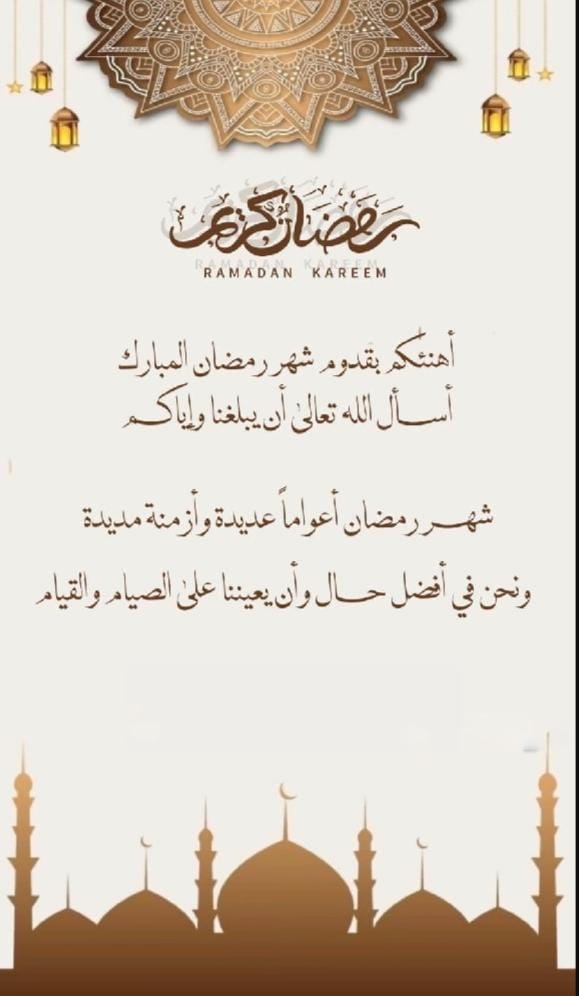 رمضان كريم
RAMADAN KAREEM
أهنئكم بقدوم شهر رمضان المبارك
أسأل الله تعالىٰ أن يبلغنا وإياكم
شهر رمضان أعواماً عديدة وأزمنة مديدة
ونحن في أفضل حال وأن يعيننا علىٰ الصيام والقيام